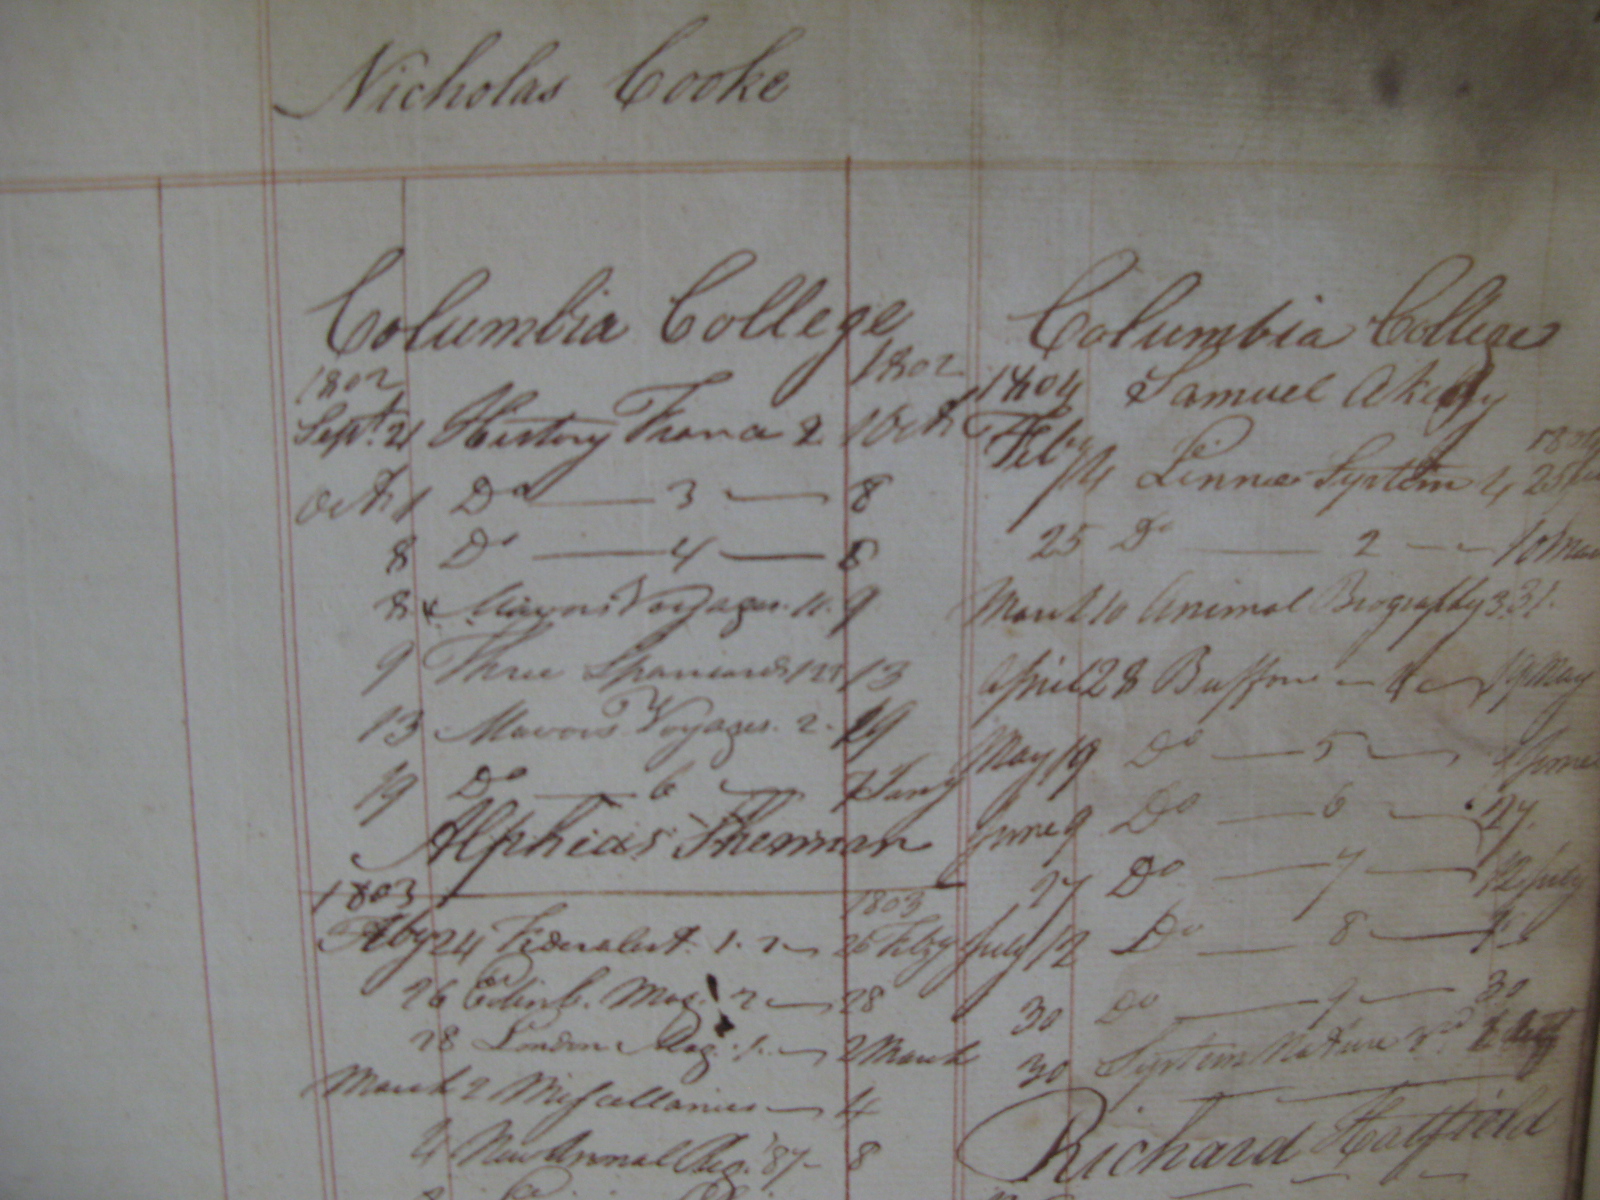 Nicholas Cooke
Columbia College
1802 1802
Sept. 21 History France 2 1 Octr
Octr 1 Do 3 8
8 Do 4 8
8 Mavors Voyages. 11. 9
9 Three Spaniards 13
13 Mavors Voyages. 2. 19
19 Do 6
Alpheus Sherman
1803 1803
Feby 24 Federalist. 1. 2 26 Feby
26 Edinb. Mag. 2 28
28 London Mag. 1. 2 March
March 2 Miscellanies 4
4 New Annual Reg. '87 8
Columbia College
1804 Samuel
Feby
14 Linnæ System 4 25
25 Do 2 10 Mar
March 10 Animal Biography 3. 31.
April 28 Buffon 4 19 May
May 19 Do 5 June
June 9 Do 6 27.
27 Do 7 12 July
July 12 Do 8
30 Do 9 30
30 System Nature
Richard Hatfield